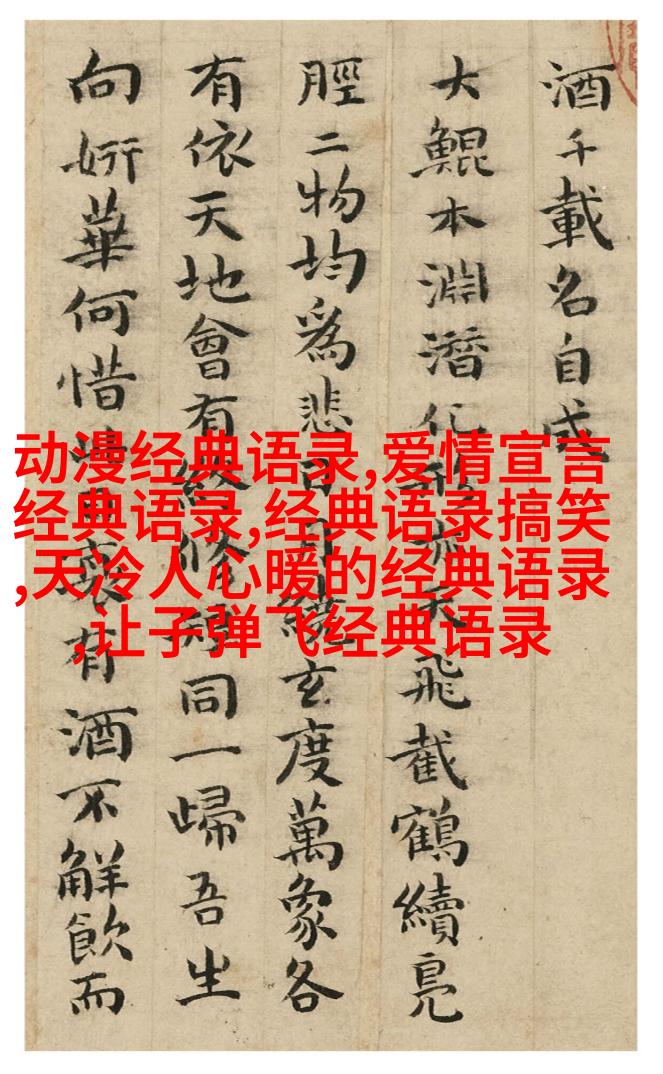 酒千載名自成
大鯤本淵潛化天飛截鶴續鳧
脛二物均爲悲日月繞玄度萬象各
有依天地會有終修短同一歸吾生
向妍華何惜衰有酒不觧飲而
动漫经典语录,爱情宣言
经典语录,经典语录搞笑
,天冷人心暖的经典语录
,让子弹飞经典语录